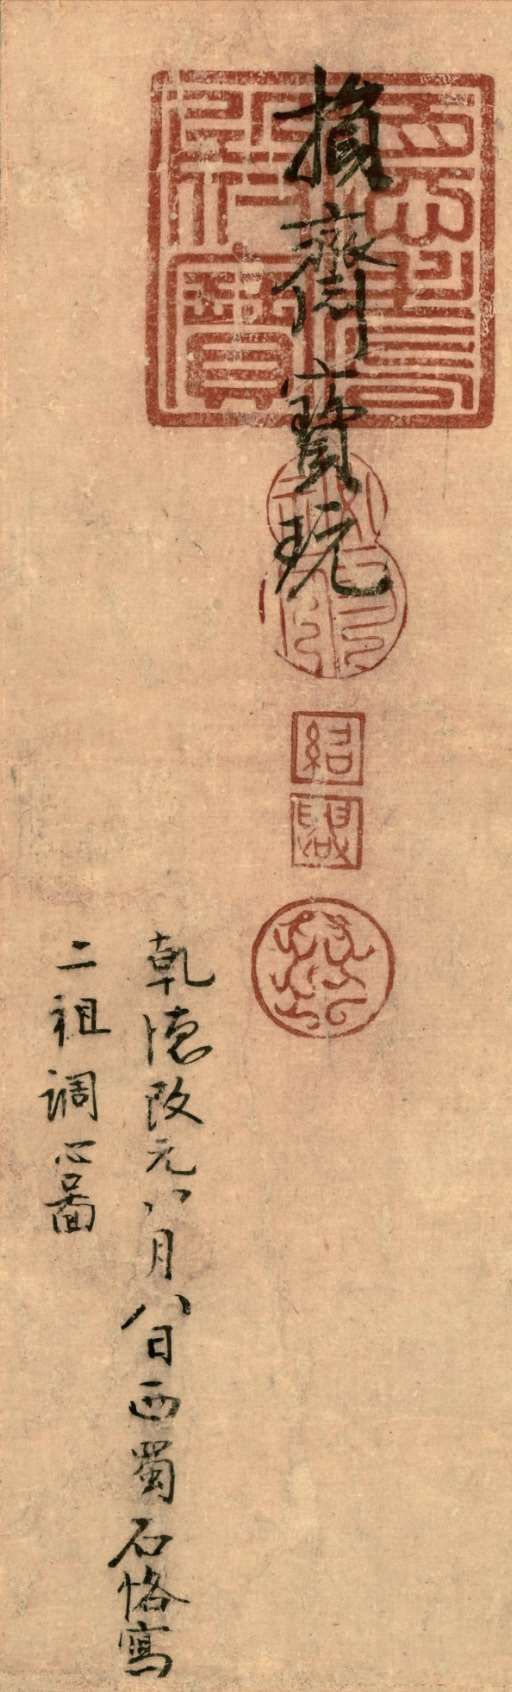 損齋寶玩
紹
興
乾德改元八月八日西蜀石恪寫
二祖調心圖